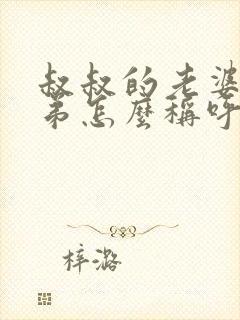 叔叔的老婆
弟怎麽稱呼
梓潞